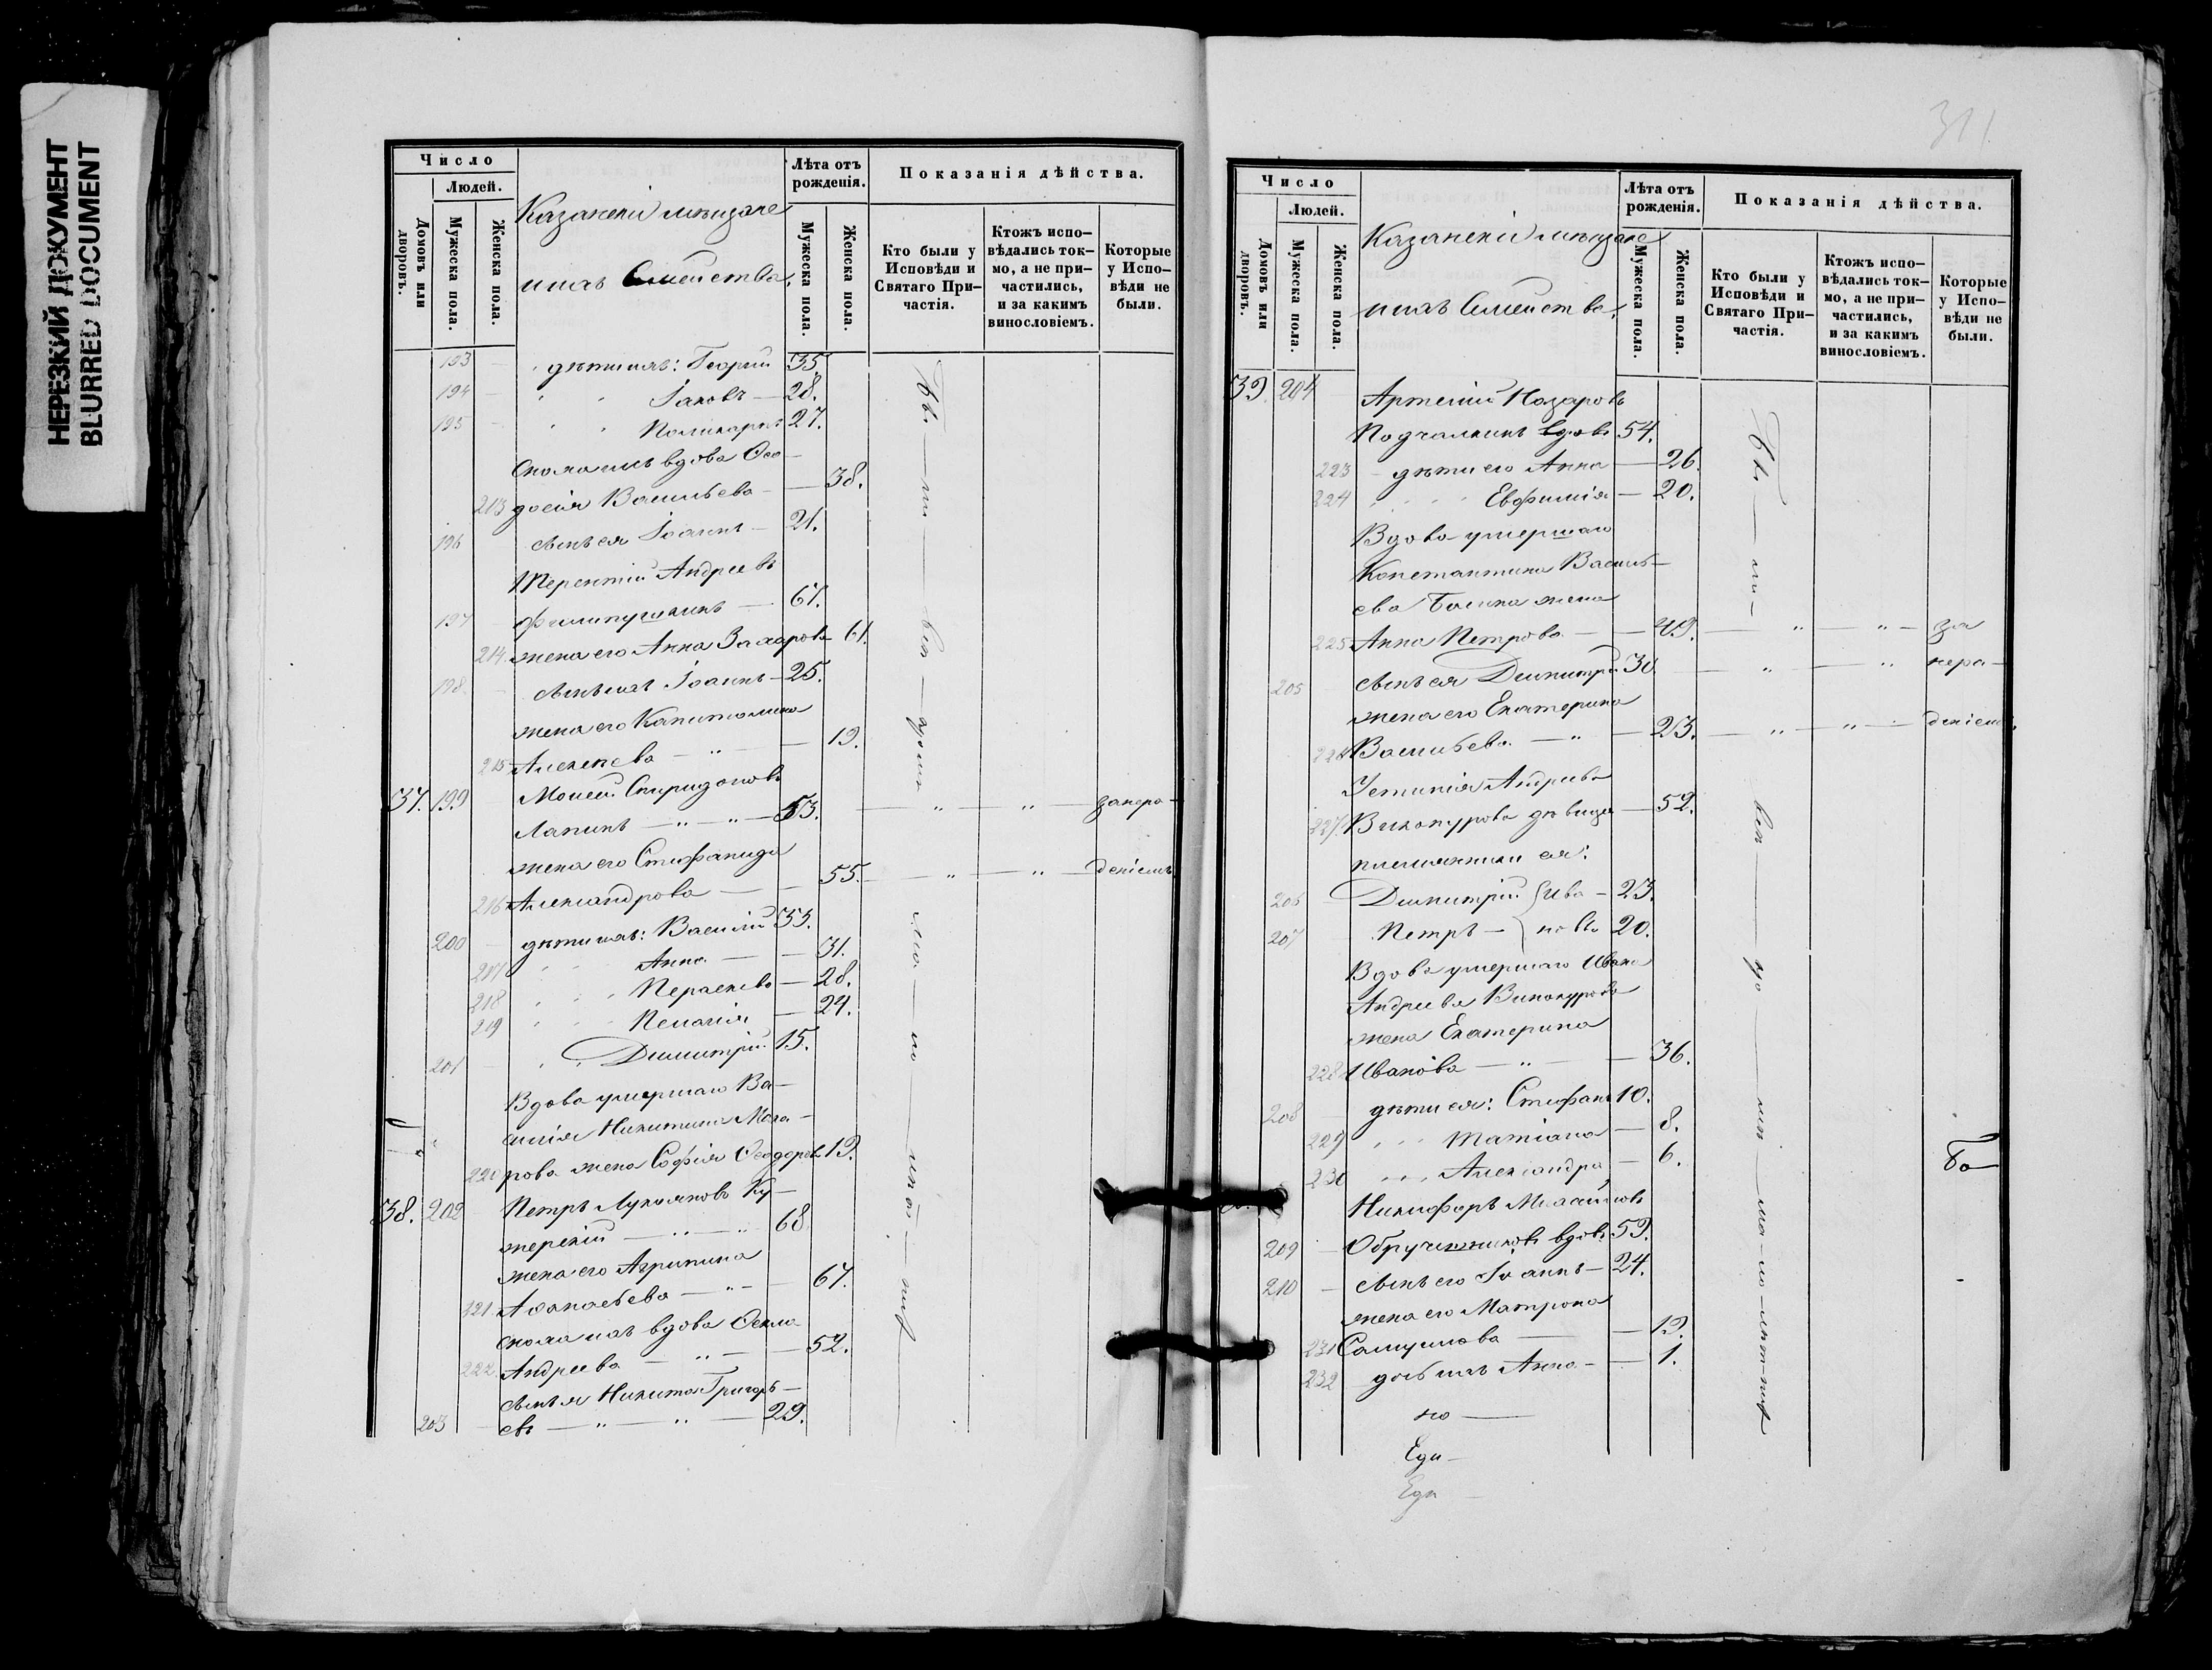 НЕРЕЗКИЙ ДОКУМЕНТ
BLURRED DOCUMENT
Число
Людей.
Домовъ или дворовъ.
Мужеска пола.
Женска пола.
Казанскіи мѣщане
и ихъ Семейства.
Лѣта отъ рожденія.
Мужеска пола.
Женска пола.
Показанія дѣйства.
Кто были у Исповѣди и Святаго При-частія.
Ктожъ испо-вѣдались ток-мо, а не при-частились, и за какимъ винословіемъ.
Которые у Испо-вѣди не были.
193 дѣти ихъ: Георгій 35.
194 " " Іаковъ — 28.
195 " " Поликарпъ 27.
Сноха ихъ вдова Ѳео-
213 досія Васильева — 38.
196 сынъ ея Іоаннъ — 21.
Терентій Андреевъ
197 Филипушкинъ — 67.
214. жена его Анна Захарова 61.
198. сынъ ихъ Іоаннъ — 25.
жена его Капитолина
215 Алексѣева — " — 19.
37. 199 Моисей Спиридоновъ
Лапинъ — " — " — 53. — " — " — за нера-
жена его Стефанида
216 Александрова — 55. — " — " — деніемъ.
200 дѣти ихъ: Василій 35.
217 " " Анна — 31.
218 " " Параскева — 28.
219 " " Пелагія — 24.
201 " " Димитрій 15.
Вдова умершаго Ва-
силія Никитина Мака-
220 рова жена Софія Ѳеодоров. 19.
38. 202 Петръ Лукояновъ Ку-
жерскій — " — " 68
жена его Агрипина
221 Аѳанасьева — " — 67.
сноха ихъ вдова Ѳекла
222. Андреева — " — 52.
сынъ я Никита Григорь-
203 евъ — " — " — 29.
311
Число
Людей.
Домовъ или дворовъ.
Мужеска пола.
Женска пола.
Казанскіи мѣщане
и ихъ Семейства.
Лѣта отъ рожденія.
Мужеска пола.
Женска пола.
Показанія дѣйства.
Кто были у Исповѣди и Святаго При-частія.
Ктожъ испо-вѣдались ток-мо, а не при-частились, и за какимъ винословіемъ.
Которые у Испо-вѣди не были.
39. 204 Артемій Назаровъ
Подчалкинъ вдовъ 54.
223 дѣти его Анна — 26.
224 " " Евфимія — 20.
Вдова умершаго
Константина Василь-
ева жена
225 Анна Петрова — 49. — " — " — за
205 сынъ ея Димитрій 30. — " — " нера-
жена его Екатерина
226 Васильева — " — 23. — " — " — деніемъ.
Устинія Андреева
227. Винокурова дѣвица — 52.
племянники ея:
206 Димитрій } Ива- 23.
207 Петръ — } новы 20.
Вдова умершаго Ивана
Андреева Винокурова
жена Екатерина
228 Иванова — " — 36.
208 дѣти ея: Стефанъ 10.
229 " " Татіана — 8.
230 " " Александра — 6.
Никифоръ Михайловъ
209 Обручниковъ вдовъ 59.
210 сынъ его Іоаннъ — 24.
жена его Матрона
231 Самуилова — 19.
232 дочь ихъ Анна — 1.
но —
Еди-
Еди